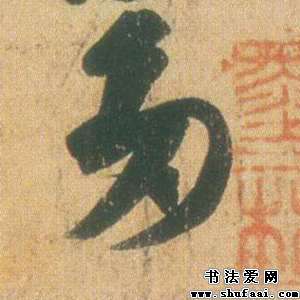 易
书法爱网
www.shufaai.com